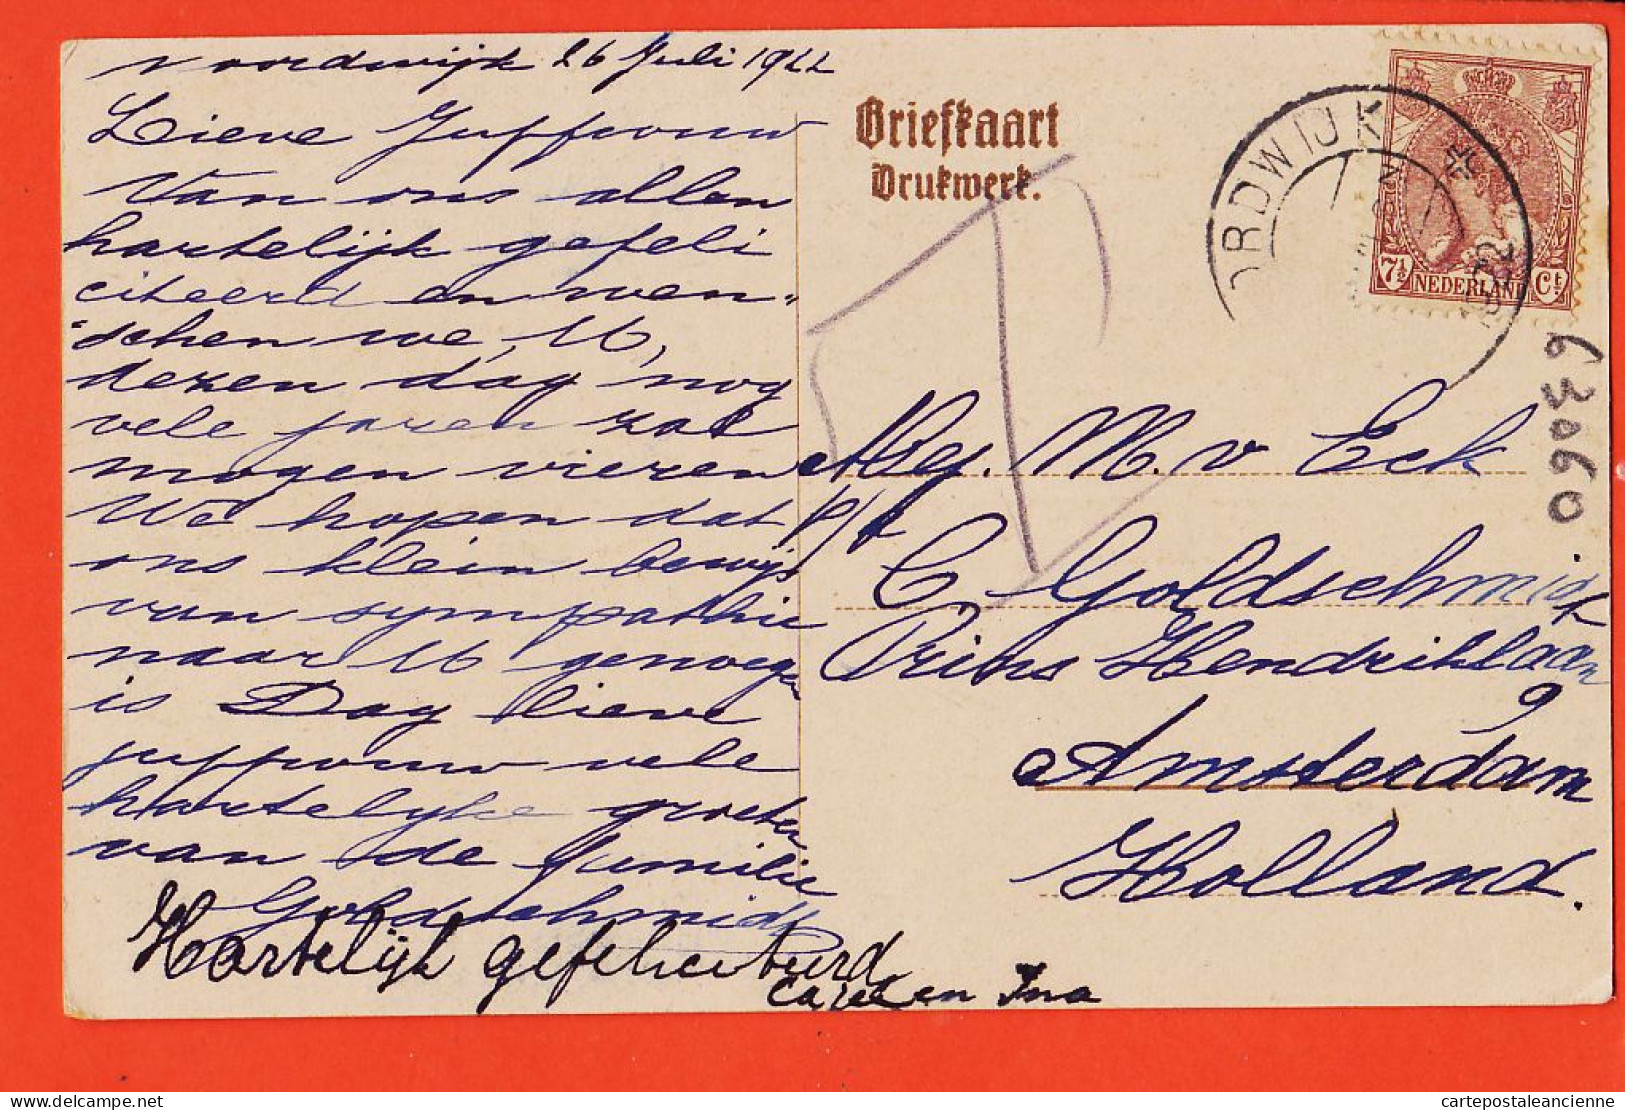 Noordwijk 26 Juli 1922
Lieve Juffrouw
Van ons allen
hartelijk gefeli
citeerd en wen„
„schen we, U,
dezen dag, nog
vele jaren zal
mogen vieren
We hopen dat
ons klein bewijs
van sympathie
naar U genoegen
is Dag lieve
juffrouw vele
hartelijke groeten
van de familie
Goldschmidt
Hartelijk gefeliciteerd,
Carel en Ina
Briefkaart
Drukwerk.
T
NOORDWIJK
22
7½ NEDERLAND Ct
63060
Mej. M. v Eck
p/f
C. Goldschmidt
Prins Hendriklaan
9
Amsterdam
Holland.
cartepostaleancienne.com